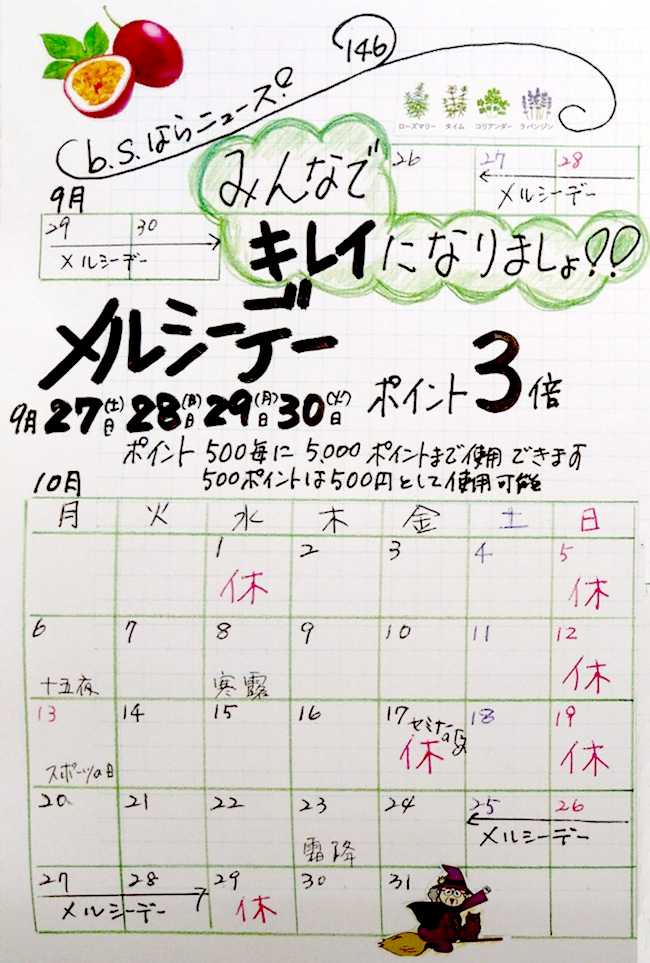 146
b.s.はらニュース!
ローズマリー タイム コリアンダー ラバンジン
みんなで
26 27 28
メルシーデー
9月
29 30
メルシーデー
キレイになりましょ!!
メルシーデー
9月27(土)日28(日)日29(月)日30(火)日 ポイント3倍
ポイント 500毎に 5,000ポイントまで使用できます
500ポイントは500円として使用可能
10月
月 火 水 木 金 土 日
1 2 3 4 5
休 休
6 7 8 9 10 11 12
十五夜 寒露 休
13 14 15 16 17 18 19
セミナーの為
スポーツの日 休 休
20 21 22 23 24 25 26
霜降 メルシーデー
27 28 29 30 31
メルシーデー 休